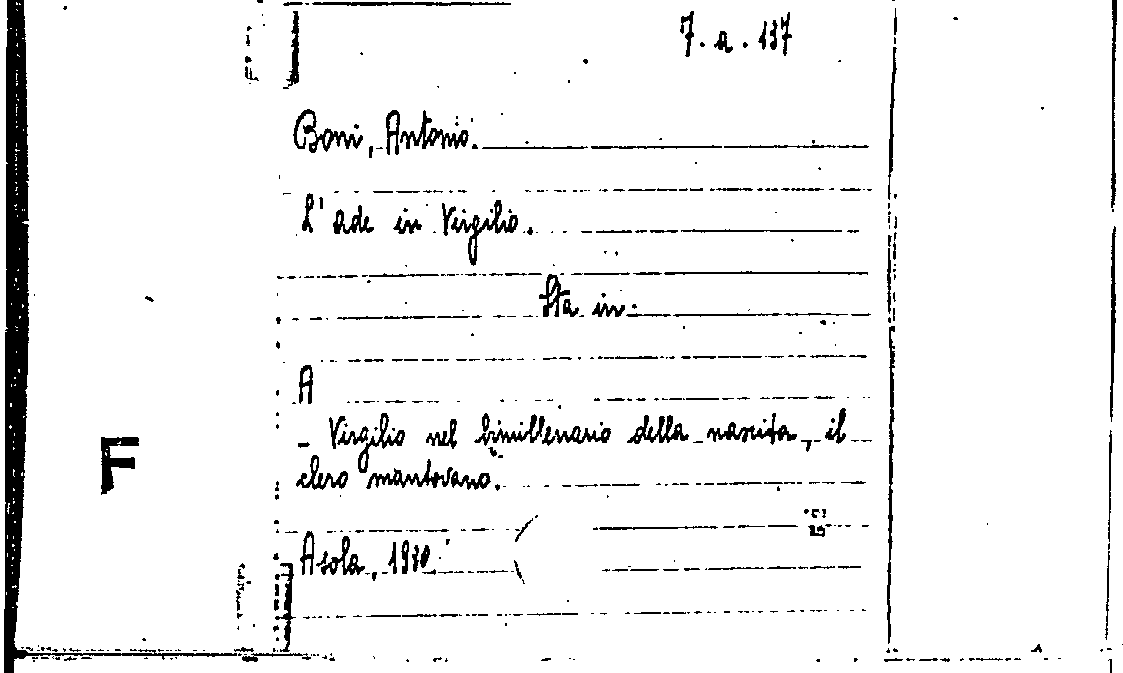 7. a. 137
Boni, Antonio.
L'Ade in Virgilio.
Sta in:
A
- Virgilio nel bimillenario della nascita, il
clero mantovano.
F
Asola, 1930.